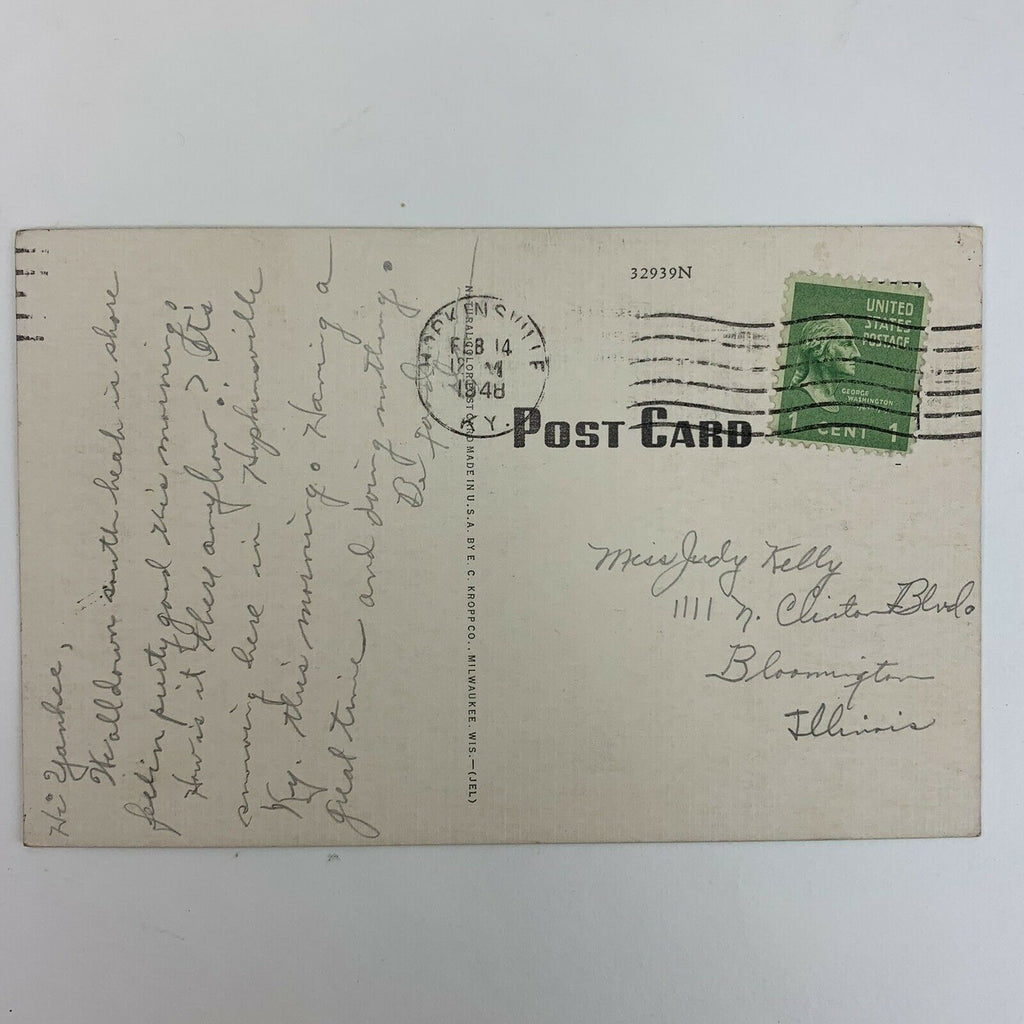 Hi Yankee,
We all down south heah is shore
feelin purty good this morning.
How is it there anyhow? It's
snowing here in Hopkinsville
Ky. this morning. Having a
great time and doing nothing.
NATURAL COLOR POST CARD MADE IN U.S.A. BY E. C. KROPP CO., MILWAUKEE, WIS.—(JEL)
HOPKINSVILLE
FEB 14
1948
KY.
32939N
UNITED
STATES
POSTAGE
GEORGE
WASHINGTON
1 CENT 1
POST CARD
Miss Judy Kelly
1111 N. Clinton Blvd.
Bloomington
Illinois